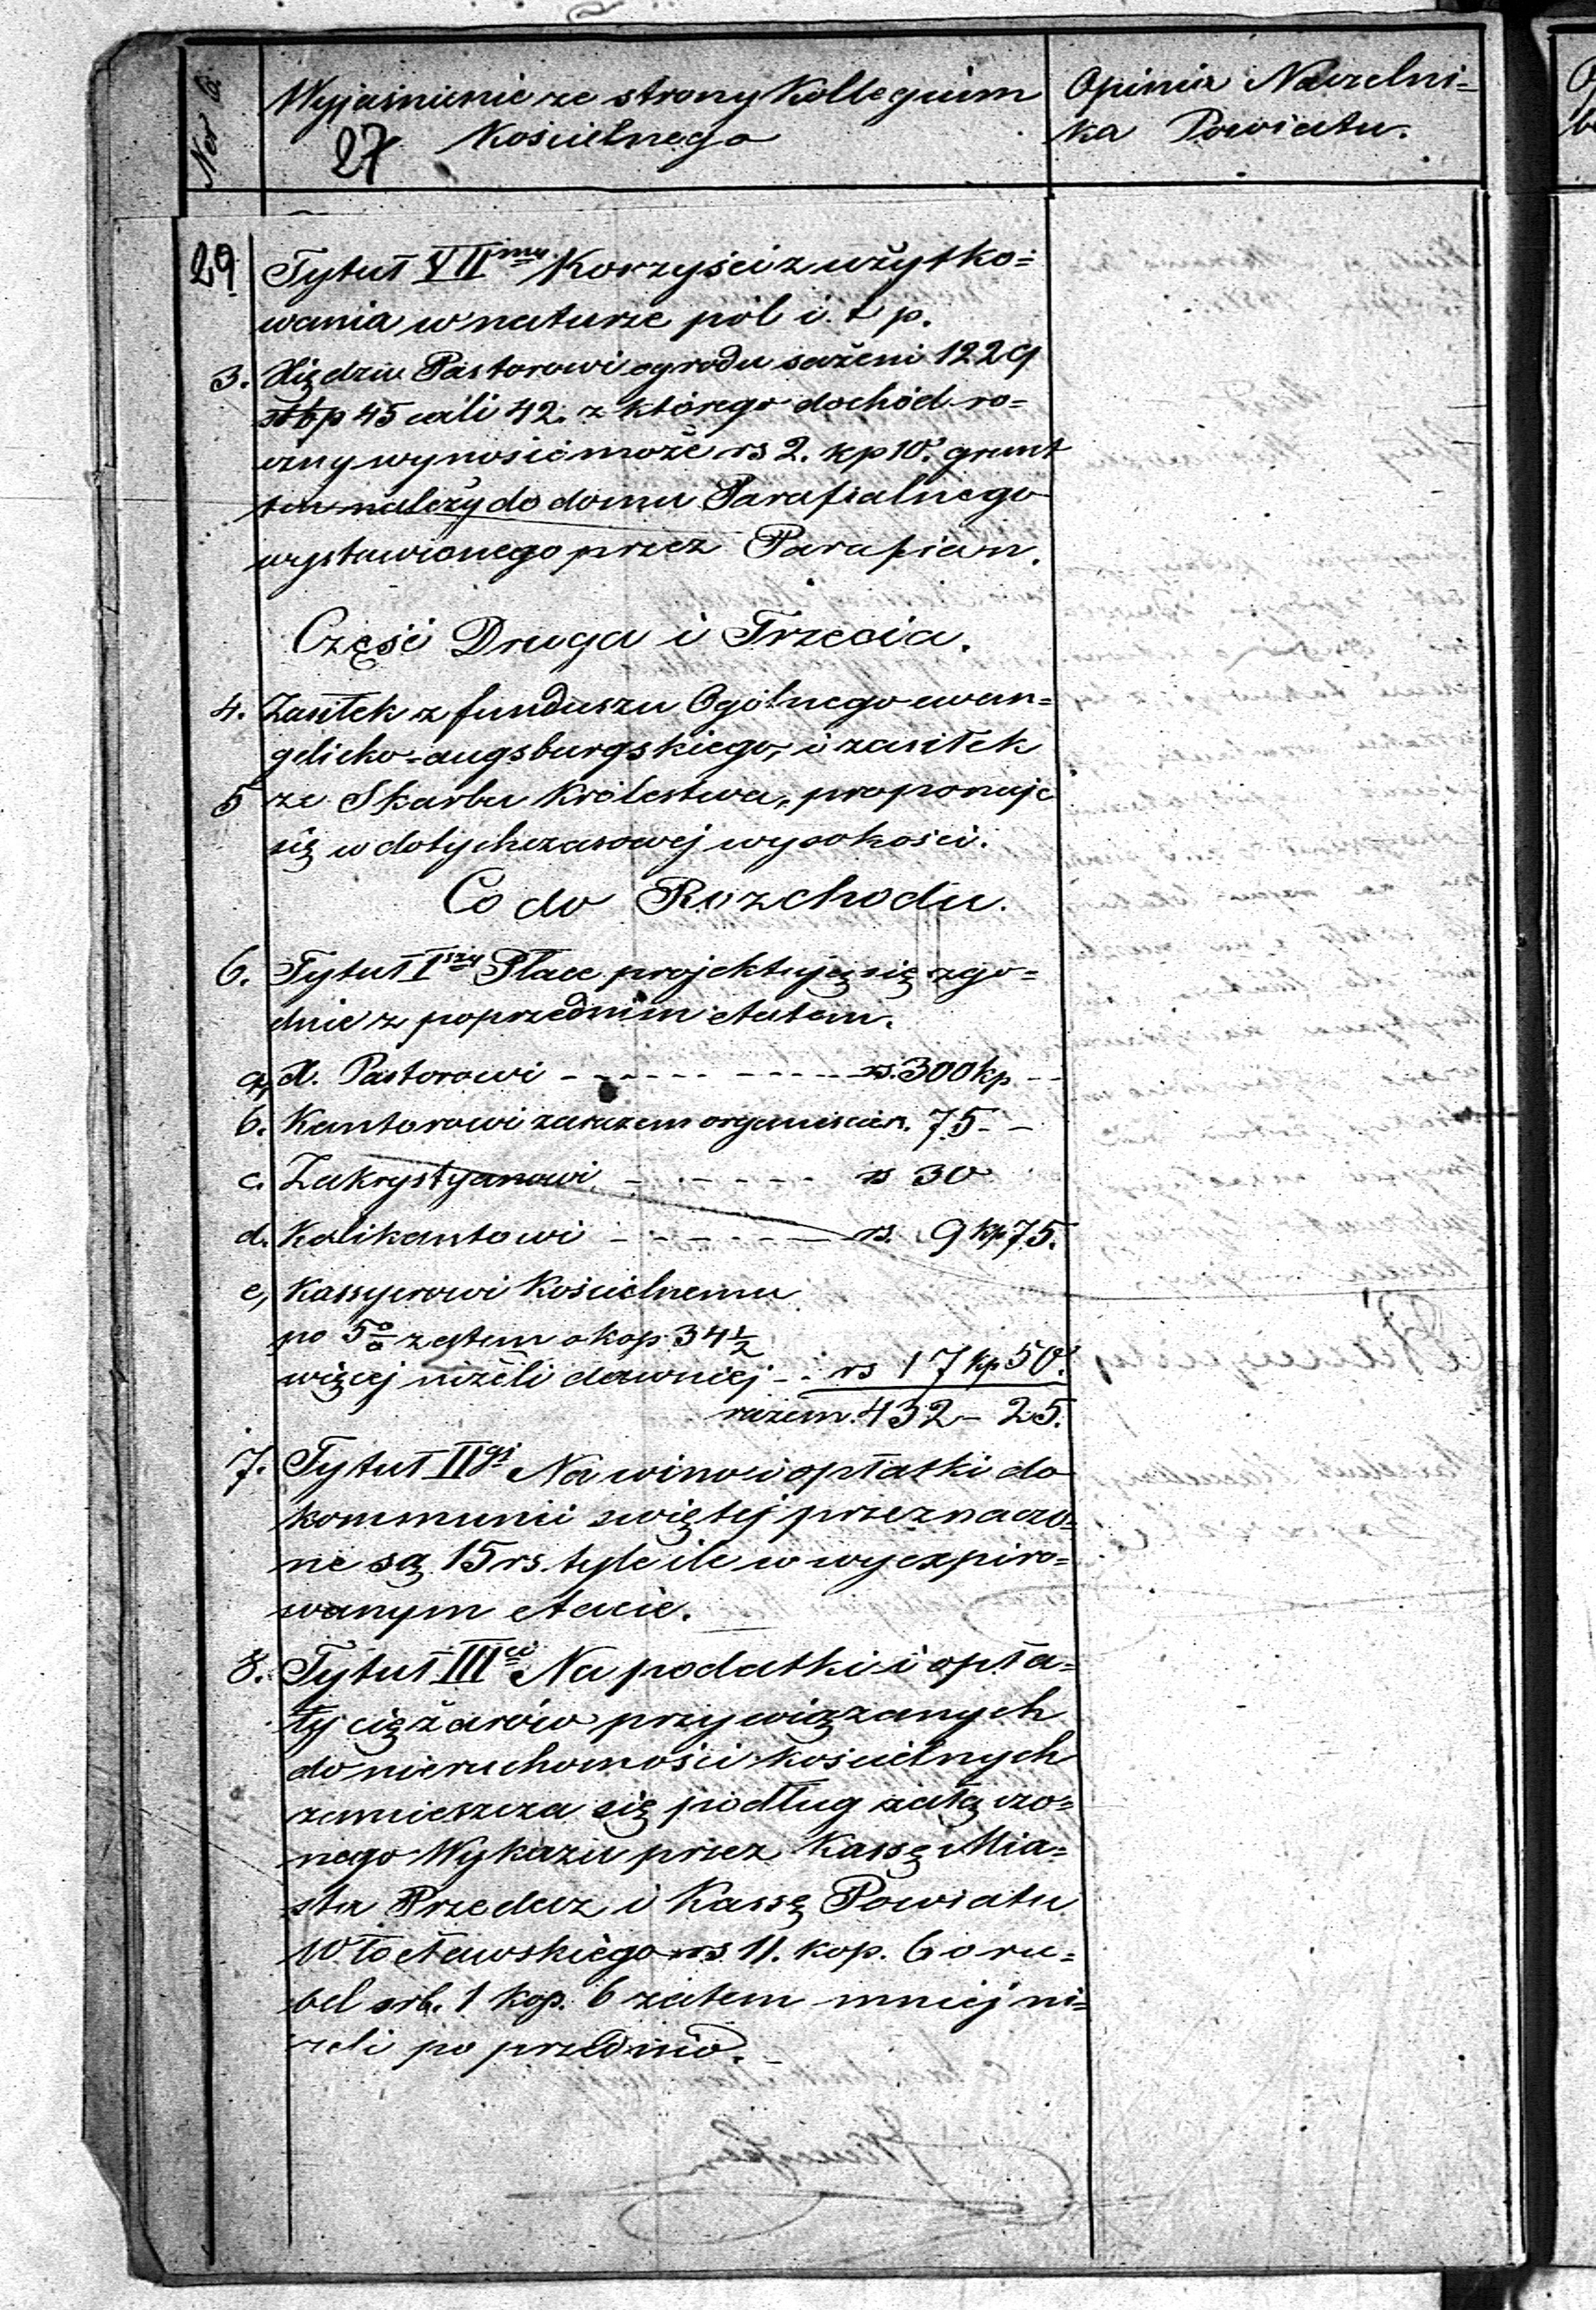 Ner b.
Wyjaśnienie ze strony Kollegium
27 Kościelnego
Opinia Naczelni=
ka Powiatu.
29
Tytuł VIImy Korzyści z użytko=
wania w naturze pól i. t p.
3. Xiędzu Pastorowi ogrodu sążeni 1229
stóp 45 cali 42. z którego dochód ro=
czny wynosić może rs 2. kp 10. grunt
ten należy do domu Parafialnego
wystawionego przez Parafian.
Część Druga i Trzecia.
4. Zasiłek z funduszu Ogólnego ewan=
gelicko=augsburgskiego, i zasiłek
5 ze Skarbu Królestwa, proponuje
się w dotychczasowej wysokości.
Co do Rozchodu.
6. Tytuł Iszy Płace projektują się zgo=
dnie z poprzednim etatem.
a, X. Pastorowi - - - - - - - - - - rs. 300 kp - -
b. Kantorowi zarazem organiście rs. 75 - -
c. Zakrystyanowi - - - - - - rs 30
d. Kalikantowi - - - - - - rs. 9 kp 75.
e, Kassyerowi Kościelnemu
po 5% zatem o kop 34½
więcej niżeli dawniej - . rs 17 kp 50.
razem. 432 - 25.
7. Tytuł IIgi Na wino i opłatki do
kommunii świętej przeznaczo=
ne są 15 rs. tyle ile w wyexpiro=
wanym etacie.
8. Tytuł IIIci Na podatki i opła=
ty ciężarów przywiązanych
do nieruchomości kościelnych
zamieszcza się podług załączo=
nego Wykazu przez Kassę Mia=
sta Przedecz i Kassę Powiatu
Włocławskiego rs 11. kop. 6 o ru=
bel srb. 1 kop. 6 zatem mniej ni=
żeli poprzednio.